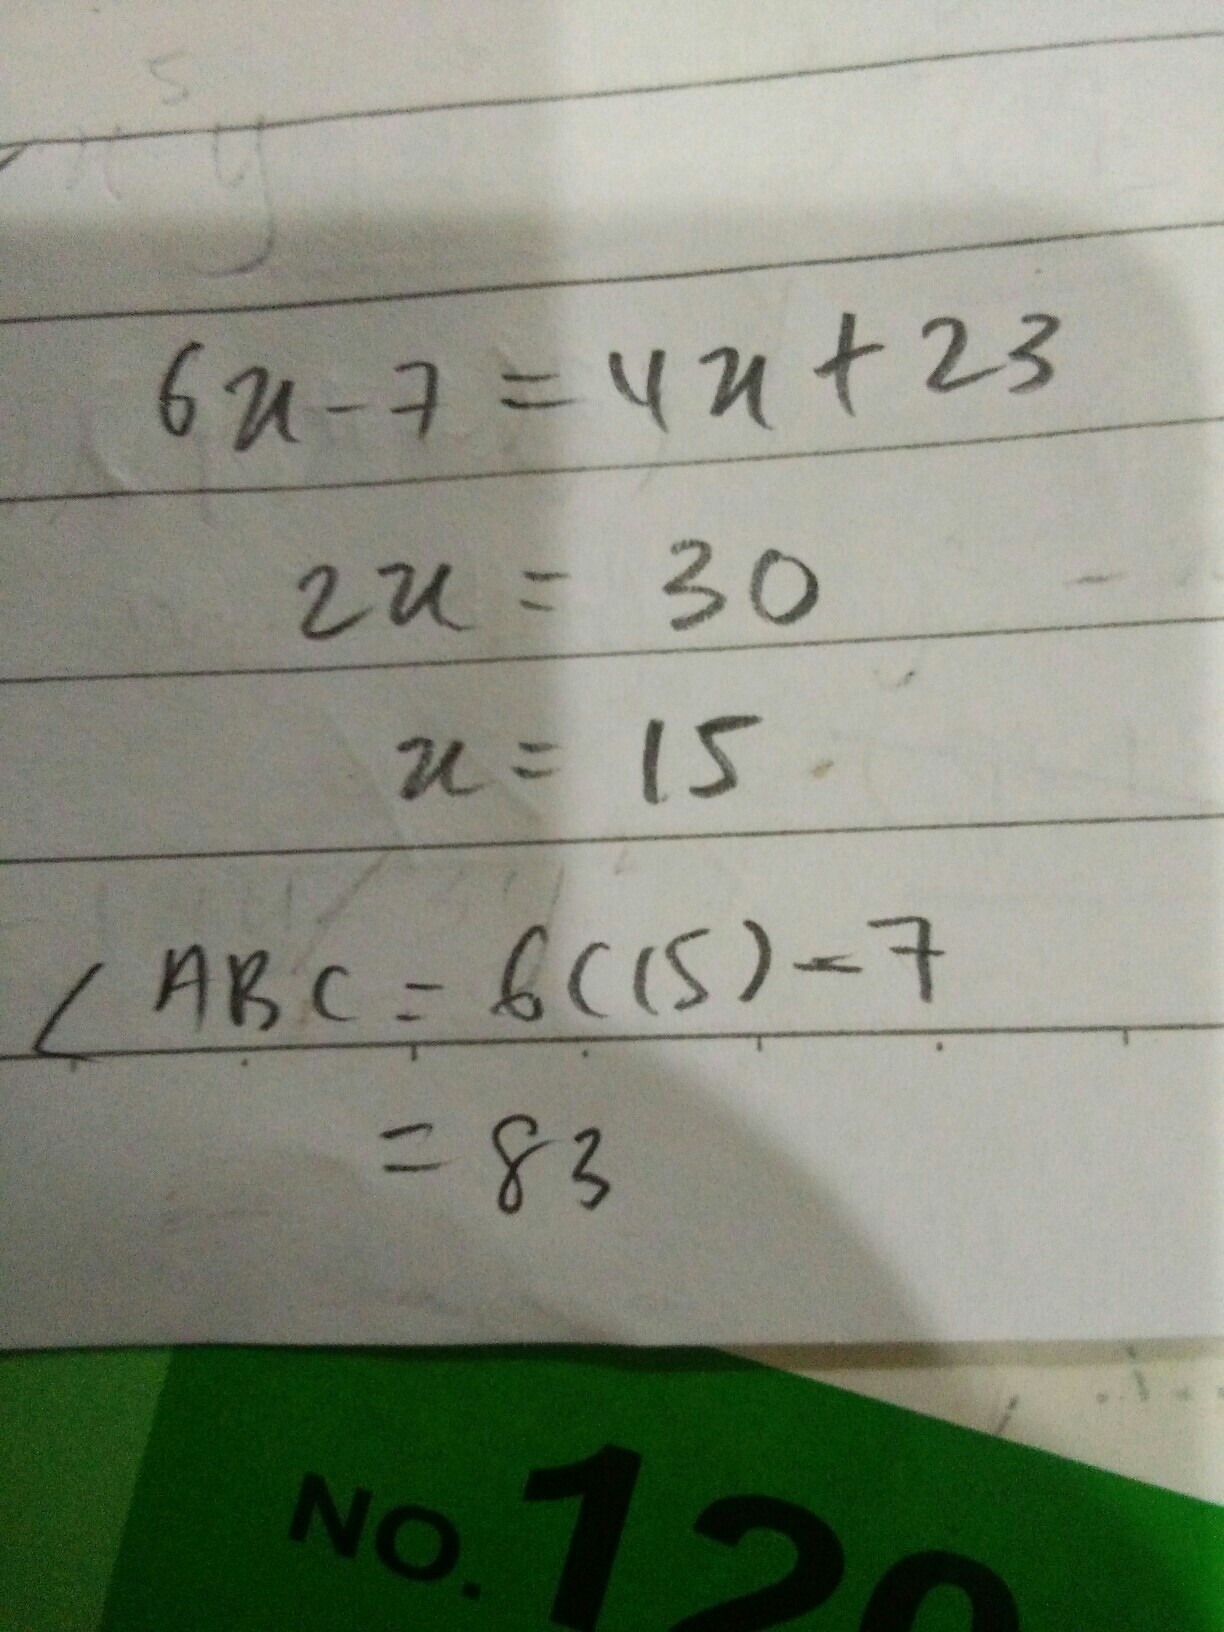 5
y
6x-7=4x+23
2x=30
x=15
∠ABC=6(15)-7
=83
NO.120